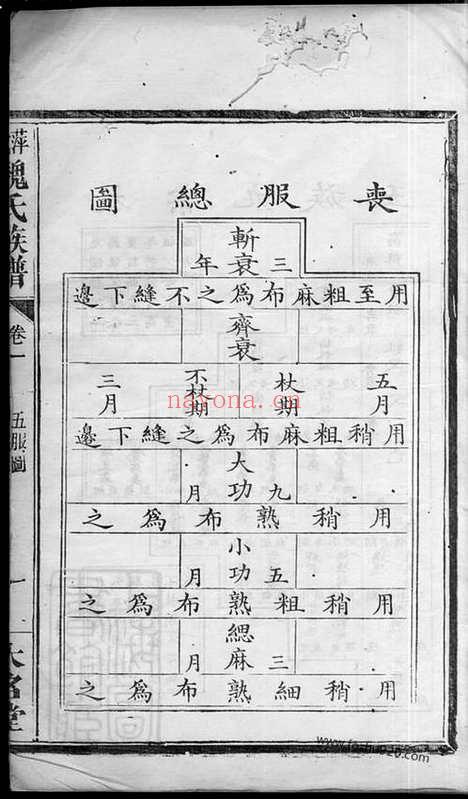 喪服總圖
斬衰
三年
用至粗麻布為之不縫下邊
齊衰
五月
杖期
不杖期
三月
用稍粗麻布為之縫下邊
大功
九月
用稍熟布為之
小功
五月
用稍粗熟布為之
緦麻
三月
用稍細熟布為之
萍魏氏族譜
卷一
五服圖
一
大名堂
nayona.cn